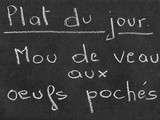 Plat du jour.
Mou de veau
aux
oeufs pochés